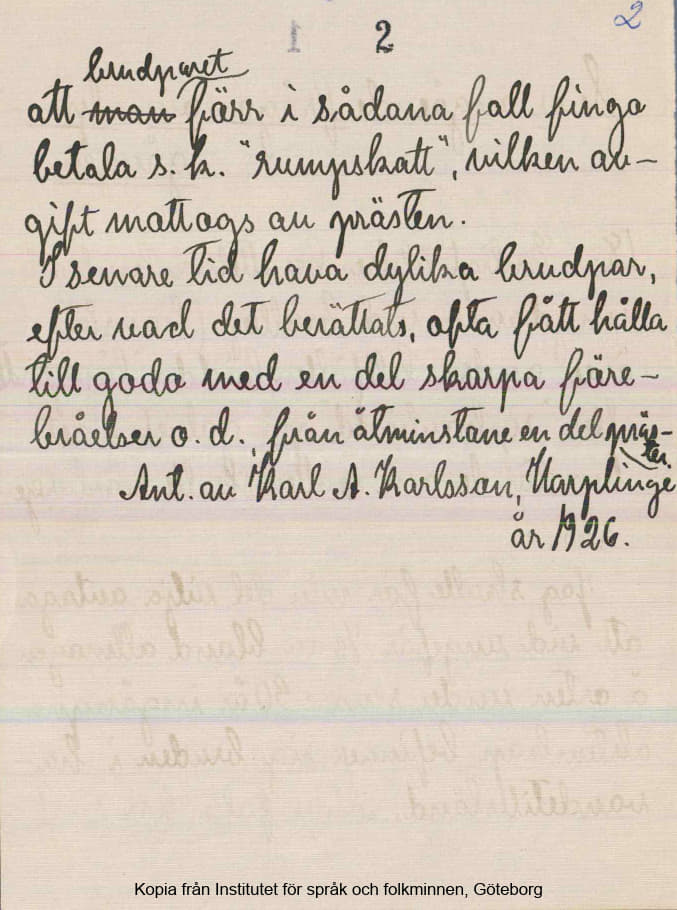 2 2
brudparet
att man förr i sådana fall finga
betala s. k. "rumpskatt", vilken av-
gift mattogs av prästen.
I senare tid hava dylika brudpar,
efter vad det berättats, ofta fått hålla
till godo med en del skarpa före-
bråelser o. d. från åtminstone en del präs-
ter.
Ant. av Karl A. Karlsson, Harplinge
år 1926.
Kopia från Institutet för språk och folkminnen, Göteborg